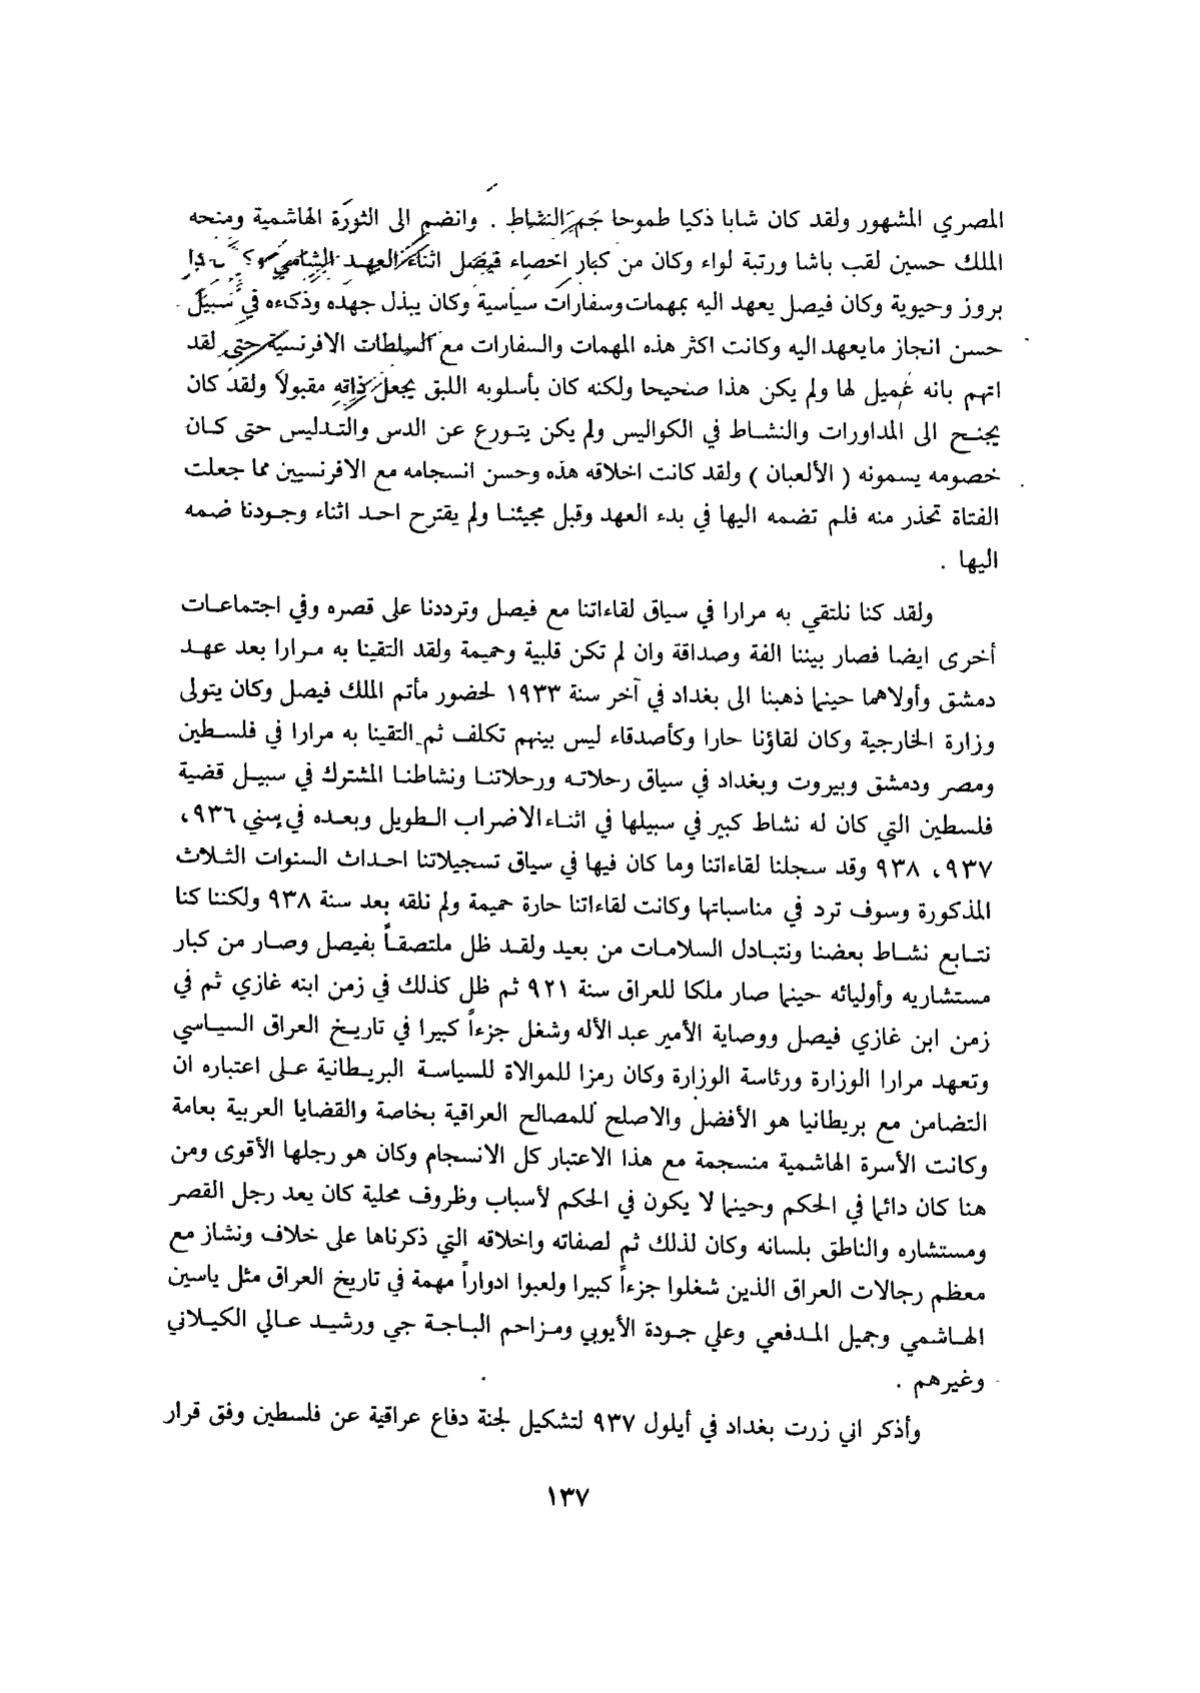 المصري المشهور ولقد كان شابا ذكيا طموحا جم النشاط . وانضم الى الثورة الهاشمية ومنحه
الملك حسين لقب باشا ورتبة لواء وكان من كبار اخصاء فيصل اثناء العهد الشامي
بروز وحيوية وكان فيصل يعهد اليه بمهمات وسفارات سياسية وكان يبذل جهده وذكاءه في سبيل
حسن انجاز مايعهد اليه وكانت اكثر هذه المهمات والسفارات مع السلطات الافرنسية حتى لقد
اتهم بانه عميل لها ولم يكن هذا صحيحا ولكنه كان بأسلوبه اللبق يجعل ذاته مقبولاً ولقد كان
يجنح الى المداورات والنشاط في الكواليس ولم يكن يتورع عن الدس والتدليس حتى كان
خصومه يسمونه ( الألعبان ) ولقد كانت اخلاقه هذه وحسن انسجامه مع الافرنسيين مما جعلت
الفتاة تحذر منه فلم تضمه اليها في بدء العهد وقبل مجيئنا ولم يقترح احد اثناء وجودنا ضمه
اليها .
ولقد كنا نلتقي به مرارا في سياق لقاءاتنا مع فيصل وترددنا على قصره وفي اجتماعات
أخرى ايضا فصار بيننا الفة وصداقة وان لم تكن قلبية وحميمة ولقد التقينا به مرارا بعد عهد
دمشق وأولاهما حينما ذهبنا الى بغداد في آخر سنة ١٩٣٣ لحضور مأتم الملك فيصل وكان يتولى
وزارة الخارجية وكان لقاؤنا حارا وكأصدقاء ليس بينهم تكلف ثم التقينا به مرارا في فلسطين
ومصر ودمشق وبيروت وبغداد في سياق رحلاته ورحلاتنا ونشاطنا المشترك في سبيل قضية
فلسطين التي كان له نشاط كبير في سبيلها في اثناء الاضراب الطويل وبعده في سني ٩٣٦ ،
٩٣٧ ، ٩٣٨ وقد سجلنا لقاءاتنا وما كان فيها في سياق تسجيلاتنا احداث السنوات الثلاث
المذكورة وسوف ترد في مناسباتها وكانت لقاءاتنا حارة حميمة ولم نلقه بعد سنة ٩٣٨ ولكننا كنا
نتابع نشاط بعضنا ونتبادل السلامات من بعيد ولقد ظل ملتصقاً بفيصل وصار من كبار
مستشاريه وأوليائه حينما صار ملكا للعراق سنة ٩٢١ ثم ظل كذلك في زمن ابنه غازي ثم في
زمن ابن غازي فيصل ووصاية الأمير عبد الأله وشغل جزءاً كبيرا في تاريخ العراق السياسي
وتعهد مرارا الوزارة ورئاسة الوزارة وكان رمزا للموالاة للسياسة البريطانية على اعتباره ان
التضامن مع بريطانيا هو الأفضل والاصلح للمصالح العراقية بخاصة والقضايا العربية بعامة
وكانت الأسرة الهاشمية منسجمة مع هذا الاعتبار كل الانسجام وكان هو رجلها الأقوى ومن
هنا كان دائما في الحكم وحينما لا يكون في الحكم لأسباب وظروف محلية كان يعد رجل القصر
ومستشاره والناطق بلسانه وكان لذلك ثم لصفاته واخلاقه التي ذكرناها على خلاف ونشاز مع
معظم رجالات العراق الذين شغلوا جزءاً كبيرا ولعبوا ادواراً مهمة في تاريخ العراق مثل ياسين
الهاشمي وجميل المدفعي وعلي جودة الأيوبي ومزاحم الباجة جي ورشيد عالي الكيلاني
وغيرهم .
وأذكر اني زرت بغداد في أيلول ٩٣٧ لتشكيل لجنة دفاع عراقية عن فلسطين وفق قرار
١٣٧